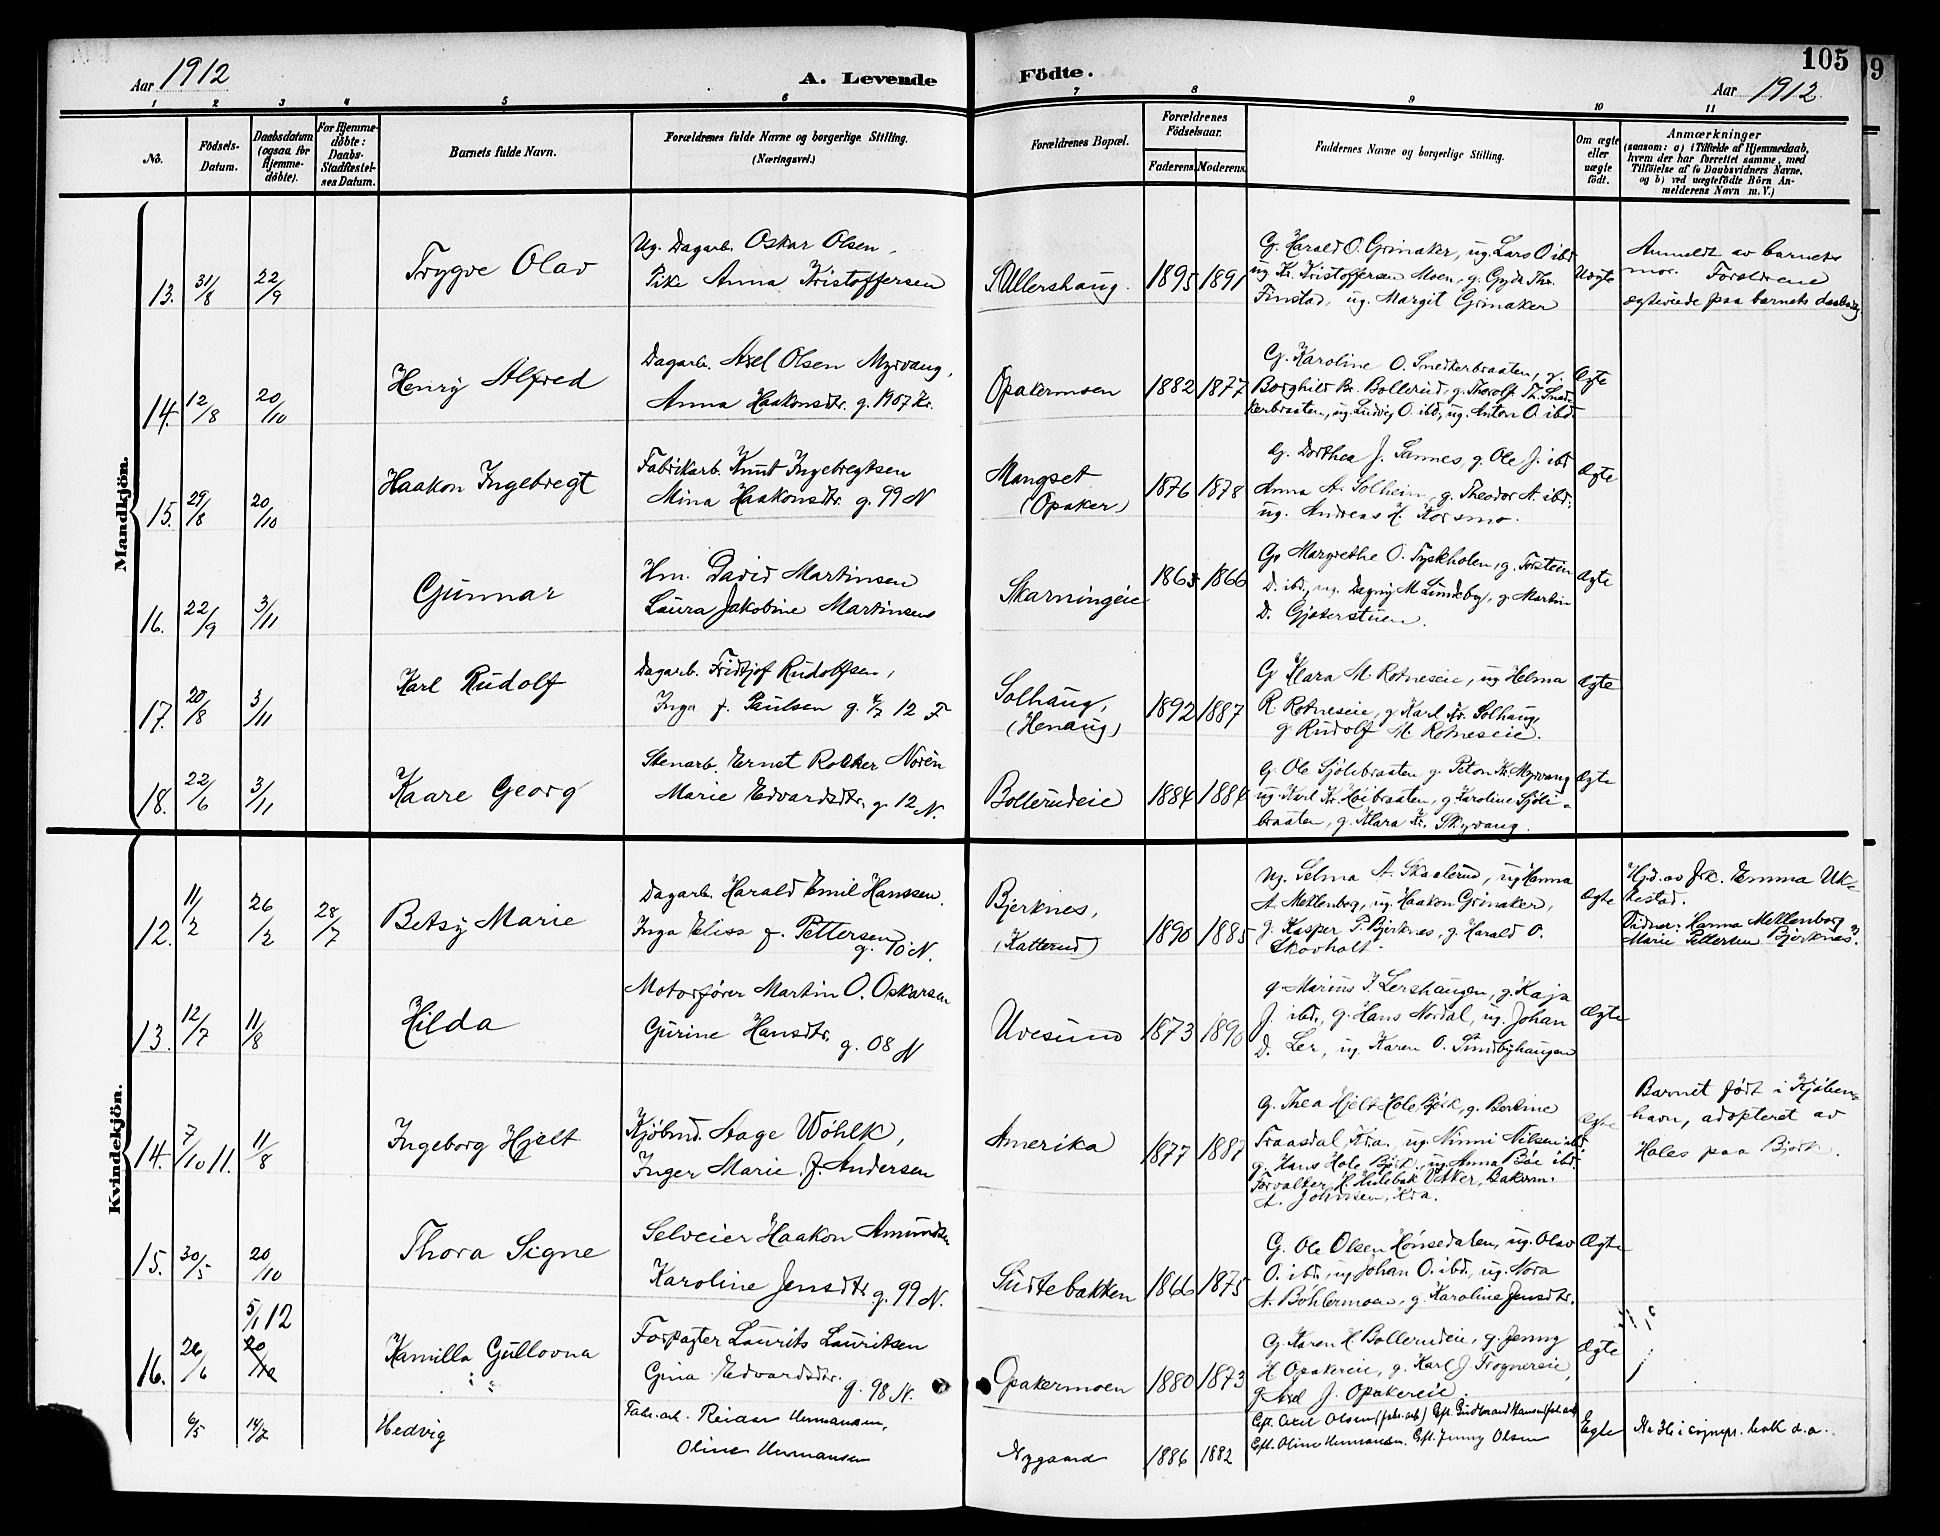 Aar 1912
A. Levende
Födte.
Aar 1912.
105
1 2 3 4 5 6 7 8 9 10 11
No.
Födsels-
Datum.
Daabsdatum
(ogsaa for
Hjemme-
döbte).
For Hjemme-
döbte:
Daabs-
Stadfæstel-
ses Datum.
Barnets fulde Navn.
Forældrenes fulde Navne og borgerlige Stilling.
(Næringsvei.)
Forældrenes Bopæl.
Forældrenes
Födselsaar.
Faderens. Moderens.
Faddernes Navne og borgerlige Stilling.
Om ægte
eller
uægte
födt.
Anmærkninger
(saasom: a) i Tilfælde af Hjemmedaab,
hvem der har forrettet samme, med
Tilföielse af to Daabsvidners Navne,
og b) ved uægtefödte Börn An-
melderens Navn m. V.)
Mandkjön.
13. 31/8 22/9
Trygve Olav
Ug. Dagarb. Oskar Olsen,
Pike Anna Kristoffersen
Ullershaug.
1895 1891
G. Harald O. Grinaker, ug. Lars O. ibd.
ug. Kr. Kristoffersen Moen, g. Gyda Thr.
Finstad, ug. Margit Grinaker
Uægte
Anmeldt av barnets
mor. Forældrene
ægteviede paa barnets daabsdag
14. 12/8 20/10
Henry Alfred
Dagarb. Axel Olsen Myrvang,
Anna Haakonsdtr. g. 1907 Kr.
Opakermoen
1882 1877
G. Karoline O. Snedkerbraaten, g.
Borghild Br. Bollerud, g. Thorolf Th. Sned-
kerbraaten, ug. Ludvig O. ibd., ug. Anton O. ibd.
Ægte
15. 29/8 20/10
Haakon Ingebregt
Fabrikarb. Knut Ingebregtsen
Mina Haakonsdtr. g. 99 N
Mangset
(Opaker)
1876 1878
G. Dorthea J. Sannes, g. Ole J. ibd
Anna A. Solheim, g. Theodor A. ibd.,
ug. Andreas H. Korsmo.
Ægte
16. 22/9 3/11
Gunnar
Hm. David Martinsen
Laura Jakobine Martinsen
Skarningeie
1865 1866
G. Margrethe O. Tyskholen, g. Torstein
D. ibd., ug. Dagny M. Lundeby, g. Martin
D. Gjøterstuen.
Ægte
17. 20/8 3/11
Karl Rudolf
Dagarb. Fridtjof Rudolfsen,
Inga f. Paulsen g. 4/7 12 F
Solhaug,
(Henaug)
1892 1887
G. Klara M. Rotneseie, ug Helma
R. Rotneseie, g. Karl Kr. Solhaug,
g Rudolf M. Rotneseie.
Ægte
18. 22/6 3/11
Kaare Georg
Stenarb. Ernst Rolker Norén
Marie Edvardsdtr. g. 12 N.
Bollerudeie
1884 1884
G. Ole Sjølibraaten g. Peton Kr. Myrvang
ug. Karl Kr. Høibraaten, g. Karoline Sjøli-
braaten, g. Klara Kr. Skyvang.
Ægte
Kvindekjön.
12. 11/2 26/2 28/7
Betsy Marie
Dagarb. Harald Emil Hanssen.
Inga Elise f. Pettersen
g. 10 N.
Bjerknes,
(Katterud)
1890 1885
Ug. Selma A. Skaalerud, ug Hanna
A. Meklenborg, ug. Haakon Grinaker,
g. Kasper P. Bjerknes, g. Harald O.
Skovholt.
Ægte
Hjd. av frk. Emma Uk-
kestad.
Vidner: Hanna Meklenborg og
Marie Pettersen Bjerknes.
13. 12/7 11/8
Hilda
Motorfører Martin O. Oskarsen
Gurine Hansdtr. g. 08 N
Uvesund
1873 1890
g Marius I. Lershaugen, g. Kaja
J. ibd., g. Hans Nordal, ug. Johan
D. Ler, ug. Karen O. Sundbyhaugen
Ægte
14. 7/10 11. 11/8
Ingeborg Hjelt
Kjøbmd. Aage Wöhlk,
Inger Marie f. Andersen
Amerika
1877 1887
G. Thea Hjelt Hole, Bjørk, g. Bertine
Traasdal Kra. ug. Ninni Nilsen ibd.
g. Hans Hole Bjørk, ug. Anna Bøe ibd.
Forvalter H. Hulebak Vikker, Bakerm.
A. Johnsen, Kra.
Ægte
Barnet født i Kjøben-
havn, adopteret av
Holes paa Bjørk.
15. 30/5 20/10
Thora Signe
Selveier Haakon Amundsen
Karoline Jensdtr g. 99 N.
Sudtebakken
1866 1875
G. Ole Olsen Hønsedalen, ug. Olav
O. ibd., ug Johan O. ibd., ug. Nora
A. Bøhlermoen, g Karoline Jensdtr.
Ægte
16. 26/6 5/1 12 20/10
Kamilla Gullovna
Forpagter Laurits Lauritsen
Gina Edvardsdtr. g. 98 N.
Opakermoen
1880 1873
G. Karen H. Bollerudeie, g. Jenny
H Opakereie, g. Karl J. Trognereie,
g. Axel J. Opakereie.
Ægte
6/5 14/7
Hedvig
Fabr.arb. Reidar Hermansen,
Oline Hermansen
Nygaard
1886 1882
Gft. Axel Olsen (fabr.arb) Gft. Gudbrand Hansen (fabr.arb)
Gft. Oline Hermansen. Gft. Jenny Olsen
Egte